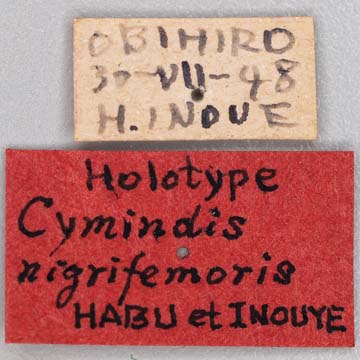 OBIHIRO
30-VII-48
H. INOUE
Holotype
Cymindis
nigrifemoris
HABU et INOUYE